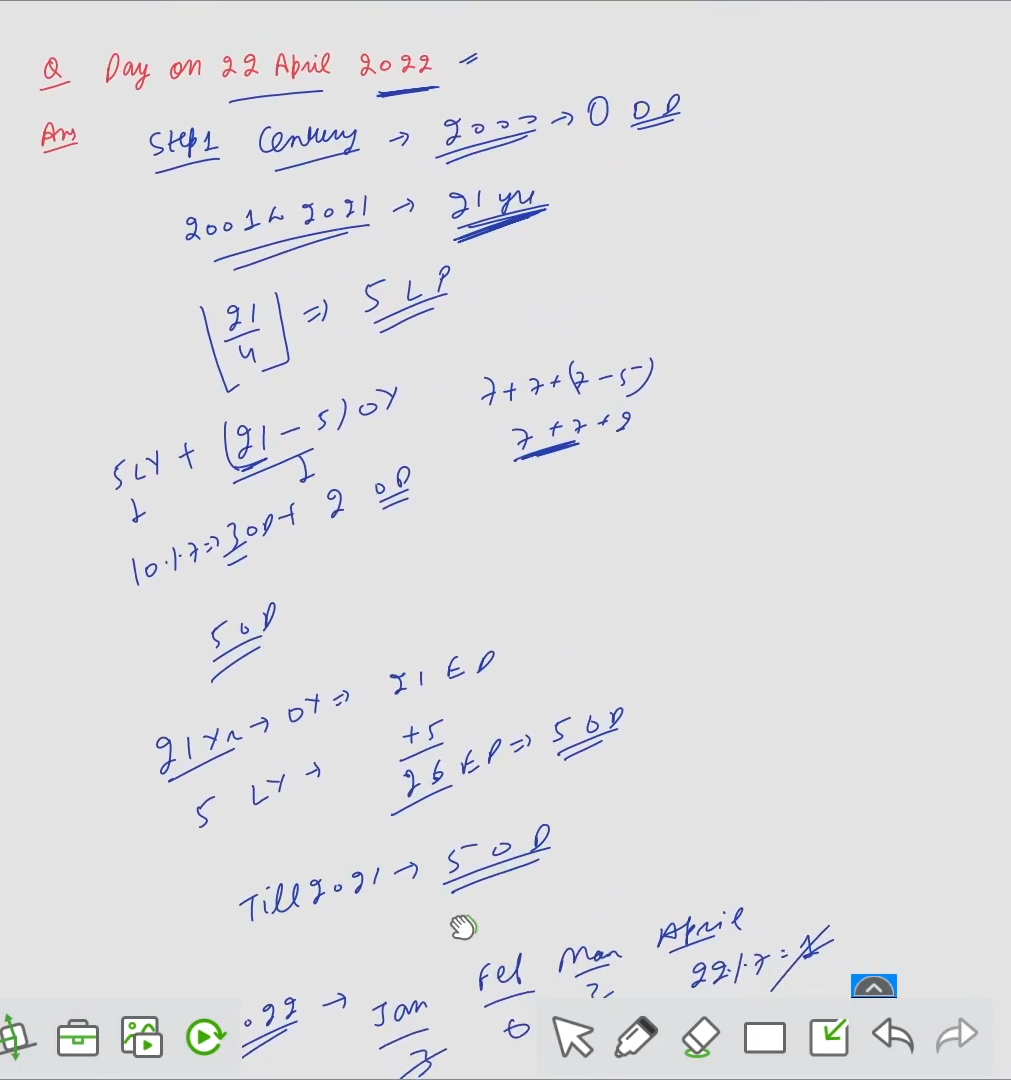 Q Day on 22 April 2022
Ans Step 1 Century → 2000 → 0 OD
2001 to 2021 → 21 yrs
[21/4] ⇒ 5 LP
5 LY + (21 - 5) OY 7+7+(7-5)
7+7+2
10·/·7 ⇒ 3 OD + 2 OD
5 OD
21 Yr → OY ⇒ 21 ED
5 LY → +5
26 ED ⇒ 5 OD
Till 2021 → 5 OD
22 → Jan Feb Mar April
3 6 3 22·/·7 = 1